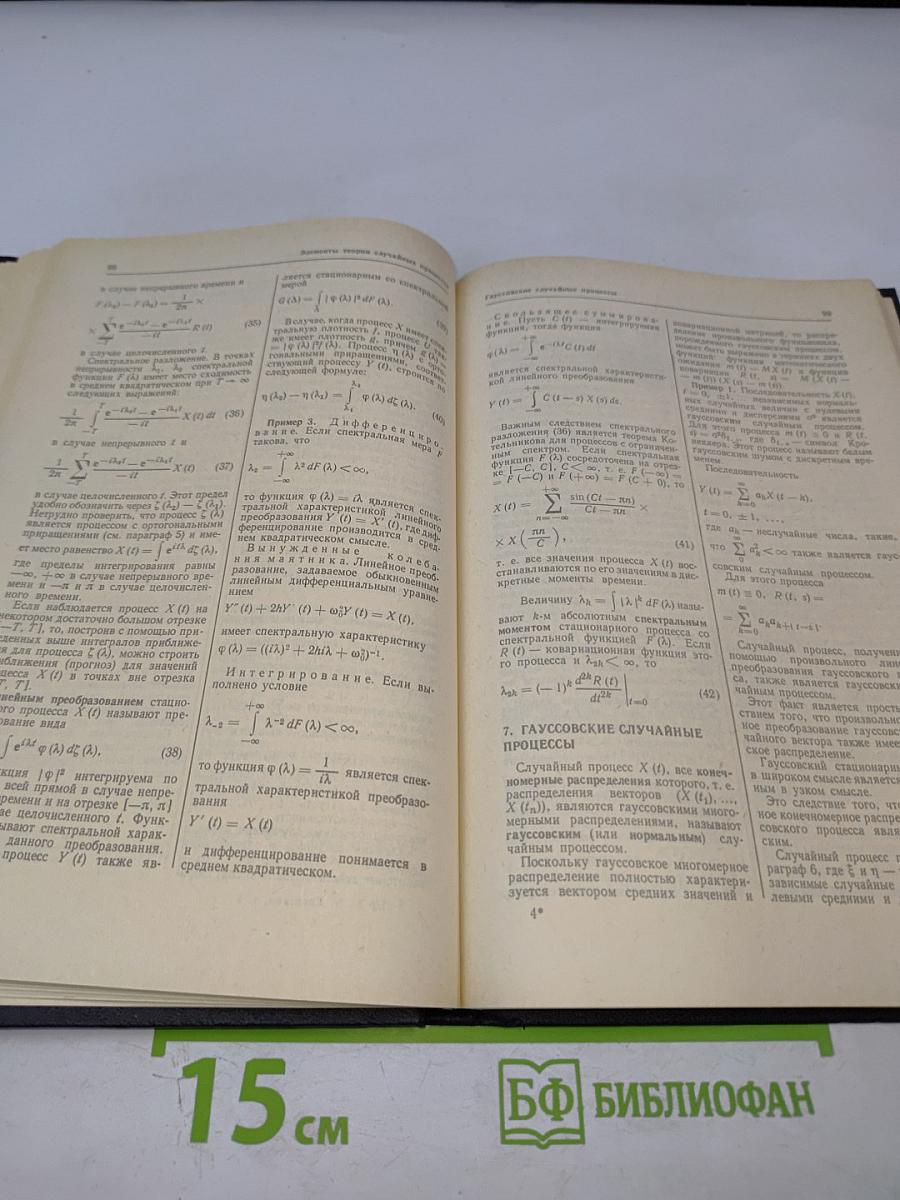 98
Элементы теории случайных процессов
в случае непрерывного времени и
F (λ₂) — F (λ₁) = 1/2π ×
× Σ_{—T}^{T} (e^{—iλ₂t} — e^{—iλ₁t})/(—it) R (t) (35)
в случае целочисленного t.
Спектральное разложение. В точках
непрерывности λ₁, λ₂ спектральной
функции F (λ) имеет место сходимость
в среднем квадратическом при T → ∞
следующих выражений:
1/2π ∫_{—T}^{T} (e^{—iλ₂t} — e^{—iλ₁t})/(—it) X (t) dt (36)
в случае непрерывного t и
1/2π Σ_{—T}^{T} (e^{—iλ₂t} — e^{—iλ₁t})/(—it) X (t) (37)
в случае целочисленного t. Этот предел
удобно обозначить через ζ (λ₂) — ζ (λ₁).
Нетрудно проверить, что процесс ζ (λ)
является процессом с ортогональными
приращениями (см. параграф 5) и име-
ет место равенство X (t) = ∫ e^{itλ} dζ (λ),
где пределы интегрирования равны
—∞, +∞ в случае непрерывного вре-
мени и —π и π в случае целочислен-
ного времени.
Если наблюдается процесс X (t) на
некотором достаточно большом отрезке
[—T, T], то, построив с помощью при-
еденных выше интегралов приближе-
ия для процесса ζ (λ), можно строить
иближения (прогноз) для значений
цесса X (t) в точках вне отрезка
T, T].
нейным преобразованием стацио-
ого процесса X (t) называют пре-
ование вида
∫ e^{iλt} φ (λ) dζ (λ), (38)
кция |φ|² интегрируема по
всей прямой в случае непре-
ремени и на отрезке [—π, π]
ае целочисленного t. Функ-
ывают спектральной харак-
данного преобразования.
процесс Y (t) также яв-
ляется стационарным со спектральной
мерой
G (Δ) = ∫_Δ |φ (λ)|² dF (λ). (39)
В случае, когда процесс X имеет спек-
тральную плотность f, процесс U так-
же имеет плотность g, причем g (λ) =
= |φ (λ)|² f (λ). Процесс η (λ) с орто-
гональными приращениями, соответ-
ствующий процессу Y (t), строится по
следующей формуле:
η (λ₂) — η (λ₁) = ∫_{λ₁}^{λ₂} φ (λ) dζ (λ). (40)
Пример 3. Дифференциро-
вание. Если спектральная мера F
такова, что
λ₂ = ∫_{—∞}^{+∞} λ² dF (λ) < ∞,
то функция φ (λ) = iλ является спек-
тральной характеристикой линейного
преобразования Y (t) = X′ (t), где диф-
ференцирование производится в сред-
нем квадратическом смысле.
Вынужденные колеба-
ния маятника. Линейное преоб-
разование, задаваемое обыкновенным
линейным дифференциальным уравне-
нием
Y″ (t) + 2hY′ (t) + ω₀²Y (t) = X (t),
имеет спектральную характеристику
φ (λ) = ((iλ)² + 2hiλ + ω₀²)⁻¹.
Интегрирование. Если вы-
полнено условие
λ₋₂ = ∫_{—∞}^{+∞} λ⁻² dF (λ) < ∞,
то функция φ (λ) = 1/iλ является спек-
тральной характеристикой преобразо-
вания
Y′ (t) = X (t)
и дифференцирование понимается в
среднем квадратическом.
Гауссовские случайные процессы
99
Скользящее суммирова-
ние. Пусть C (t) — интегрируемая
функция, тогда функция
φ (λ) = ∫_{—∞}^{+∞} e^{—itλ} C (t) dt
является спектральной характеристи-
кой линейного преобразования
Y (t) = ∫_{—∞}^{+∞} C (t — s) X (s) ds.
Важным следствием спектрального
разложения (36) является теорема Ко-
тельникова для процессов с ограничен-
ным спектром. Если спектральная
функция F (λ) сосредоточена на отрез-
ке [—C, C], C < ∞, т. е. F (—∞) =
= F (—C) и F (+∞) = F (C + 0), то
X (t) = Σ_{n=—∞}^{+∞} sin (Ct — πn)/(Ct — πn) ×
× X (πn/C), (41)
т. е. все значения процесса X (t) вос-
станавливаются по его значениям в дис-
кретные моменты времени.
Величину λₖ = ∫ |λ|ᵏ dF (λ) назы-
вают k-м абсолютным спектральным
моментом стационарного процесса со
спектральной функцией F (λ). Если
R (t) — ковариационная функция это-
го процесса и λ₂ₖ < ∞, то
λ₂ₖ = (—1)ᵏ d²ᵏR (t)/dt²ᵏ |_{t=0} (42)
7. ГАУССОВСКИЕ СЛУЧАЙНЫЕ
ПРОЦЕССЫ
Случайный процесс X (t), все конеч-
номерные распределения которого, т. е.
распределения векторов (X (t₁), ...,
X (tₙ)), являются гауссовскими много-
мерными распределениями, называют
гауссовским (или нормальным) слу-
чайным процессом.
Поскольку гауссовское многомерное
распределение полностью характери-
зуется вектором средних значений и
4*
ковариационной матрицей, то распре-
деления произвольного функционала,
порожденного гауссовским процессом,
может быть выражено в терминах двух
функций: функции математического
ожидания m (t) = MX (t) и функции
ковариации R (t, s) = M (X (t) —
— m (t)) (X (s) — m (s)).
Пример 1. Последовательность X (t),
t = 0, ±1, ... независимых нормаль-
ных случайных величин с нулевыми
средними и дисперсиями σ² является
гауссовским случайным процессом.
Для этого процесса m (t) ≡ 0 и R (t,
s) = σ²δₜ,ₛ, где δₜ,ₛ — символ Кро-
некера. Этот процесс называют белым
гауссовским шумом с дискретным вре-
менем.
Последовательность
Y (t) = Σ_{k=0}^{∞} aₖX (t — k),
t = 0, ±1, ...,
где aₖ — неслучайные числа, такие,
что Σ_{0}^{∞} aₖ² < ∞ также является гаус-
совским случайным процессом.
Для этого процесса
m (t) ≡ 0, R (t, s) =
= Σ_{k=0}^{∞} aₖaₖ₊|ₜ₋ₛ|.
Случайный процесс, получен
помощью произвольного лине
преобразования гауссовского п
са, также является гауссовски
чайным процессом.
Этот факт является прость
ствием того, что произвольно
ное преобразование гауссовс
чайного вектора также имее
ское распределение.
Гауссовский стационарны
в широком смысле является
ным в узком смысле.
Это следствие того, что
ное конечномерное распре
совского процесса явля
ским.
Случайный процесс п
раграф 6, где ξ и η —
зависимые случайные
левыми средними и
15 см
БФ БИБЛИОФАН